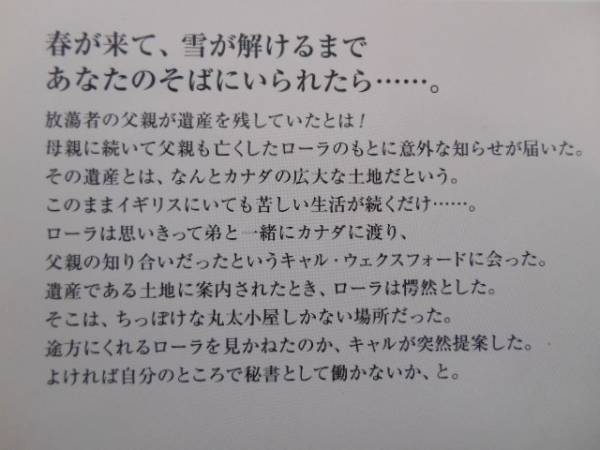 春が来て、雪が解けるまで
あなたのそばにいられたら……。
放蕩者の父親が遺産を残していたとは!
母親に続いて父親も亡くしたローラのもとに意外な知らせが届いた。
その遺産とは、なんとカナダの広大な土地だという。
このままイギリスにいても苦しい生活が続くだけ……。
ローラは思いきって弟と一緒にカナダに渡り、
父親の知り合いだったというキャル・ウェクスフォードに会った。
遺産である土地に案内されたとき、ローラは愕然とした。
そこは、ちっぽけな丸太小屋しかない場所だった。
途方にくれるローラを見かねたのか、キャルが突然提案した。
よければ自分のところで秘書として働かないか、と。